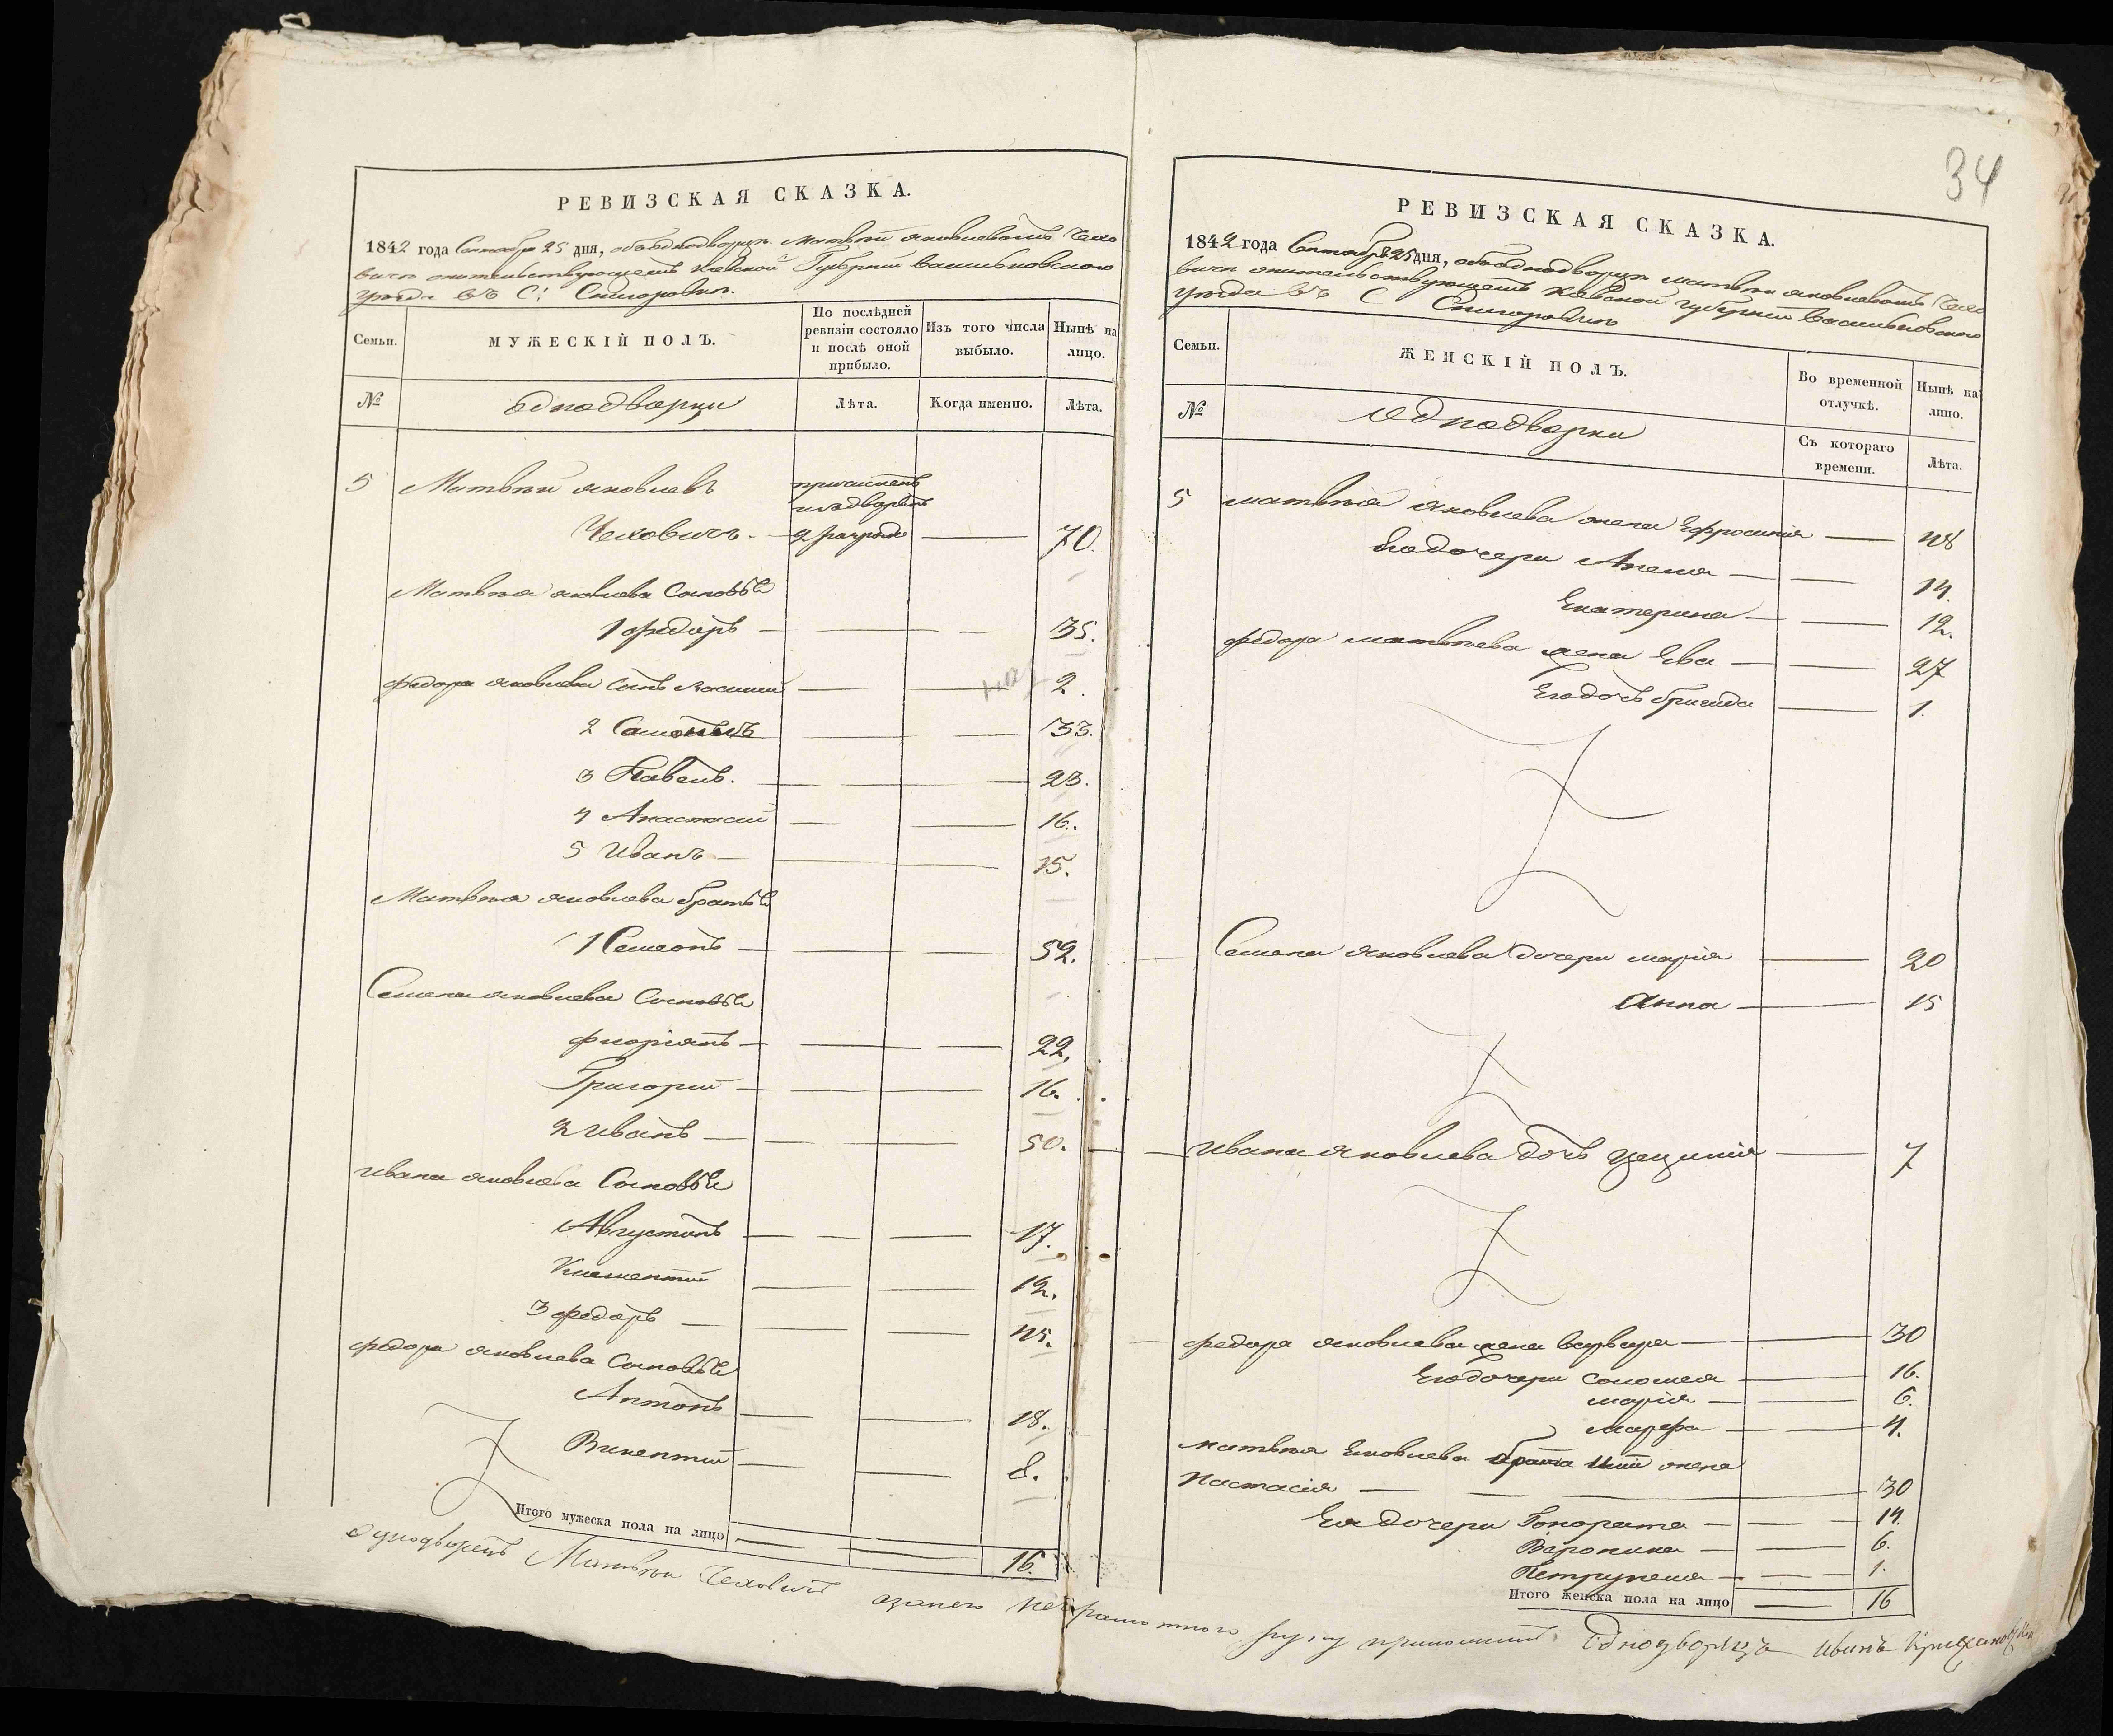 РЕВИЗСКАЯ СКАЗКА.
1842 года Сентября 25 дня, объ однодворце Матвеи Яковлевомъ Чехо
вичъ жительствующемъ Киевской Губернии Васильковскаго
уезда въ С:
Семьи.
МУЖЕСКІЙ ПОЛЪ.
По послѣдней ревизіи состояло и послѣ оной прибыло.
Изъ того числа выбыло.
Нынѣ на лицо.
№
Однодворцы
Лѣта.
Когда именно.
Лѣта.
5 Матвей Яковлевъ
Чеховичъ. 2 разряда 70.
Матвея Яковлева Сыновья
1 Федоръ 35.
Федора Яковлева Сынъ 2.
2 33.
3 Павелъ. 23.
4 Анастасий 16.
5 Иванъ 15.
Матвея Яковлева братья
1 Семенъ 52.
Семена Яковлева Сыновья
Флоріянъ 22,
Григорий 16.
2 Иванъ 50.
Ивана Яковлева Сыновья
Августинъ 17.
Климентий 12.
3 Федоръ 45.
Федора Яковлева Сыновья
Антонъ 18.
Викентий 8.
Итого мужеска пола на лицо 16.
34
РЕВИЗСКАЯ СКАЗКА.
1842 года Сентября 25 дня, объ однодворце Матвеи Яковлевомъ Чехо
вичъ жительствующемъ Киевской губернии Васильковскаго
уезда въ С
Семьи.
ЖЕНСКІЙ ПОЛЪ.
Во временной отлучкѣ.
Нынѣ на лицо.
№
Однодворки
Съ котораго времени.
Лѣта.
5 Матвея Яковлева жена Ефросинія 48
Его дочери Анеля 14.
Екатерина 12.
Федора Матвеева жена Ева 27
Его дочь Бригида 1.
Семена Яковлева дочери Марія 20
Анна 15
Ивана Яковлева дочь Цецилія 7
Федора Яковлева жена Варвара 30
Его дочери Соломея 16.
Марія 6.
Марфа 4.
Матвея Яковлева брата жена
Настасія 30
Ея дочери Гонората 14.
Вероника 6.
Петрунеля 1.
Итого женска пола на лицо 16
Однодворецъ Матвей Чеховичъ а за него неграмотного руку приложилъ Однодворецъ Иванъ